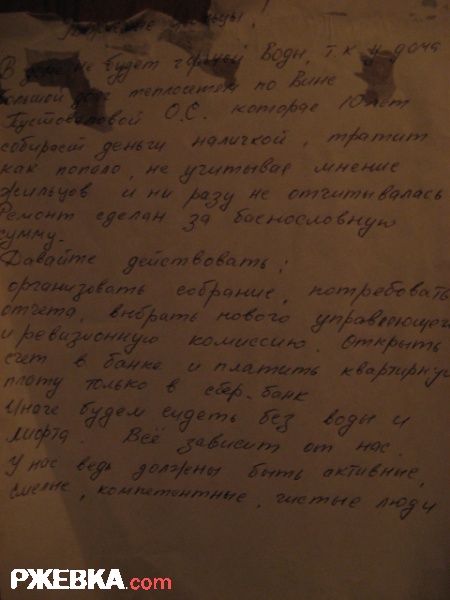 жильцы!
В доме не будет горячей воды, т.к у дома
большой долг теплосетям по вине
Пустоваловой О.С. которая 10 лет
собирает деньги наличкой, тратит
как попало, не учитывая мнение
жильцов и ни разу не отчитывалась
Ремонт сделан за баснословную
сумму.
Давайте действовать:
организовать собрание, потребовать
отчета, выбрать нового управляющего
и ревизионную комиссию. Открыть
счет в банке и платить квартирную
плату только в сбер-банк
Иначе будем сидеть без воды и
лифта. Всё зависит от нас.
У нас ведь должны быть активные,
смелые, компетентные, чистые люди
РЖЕВКА.com